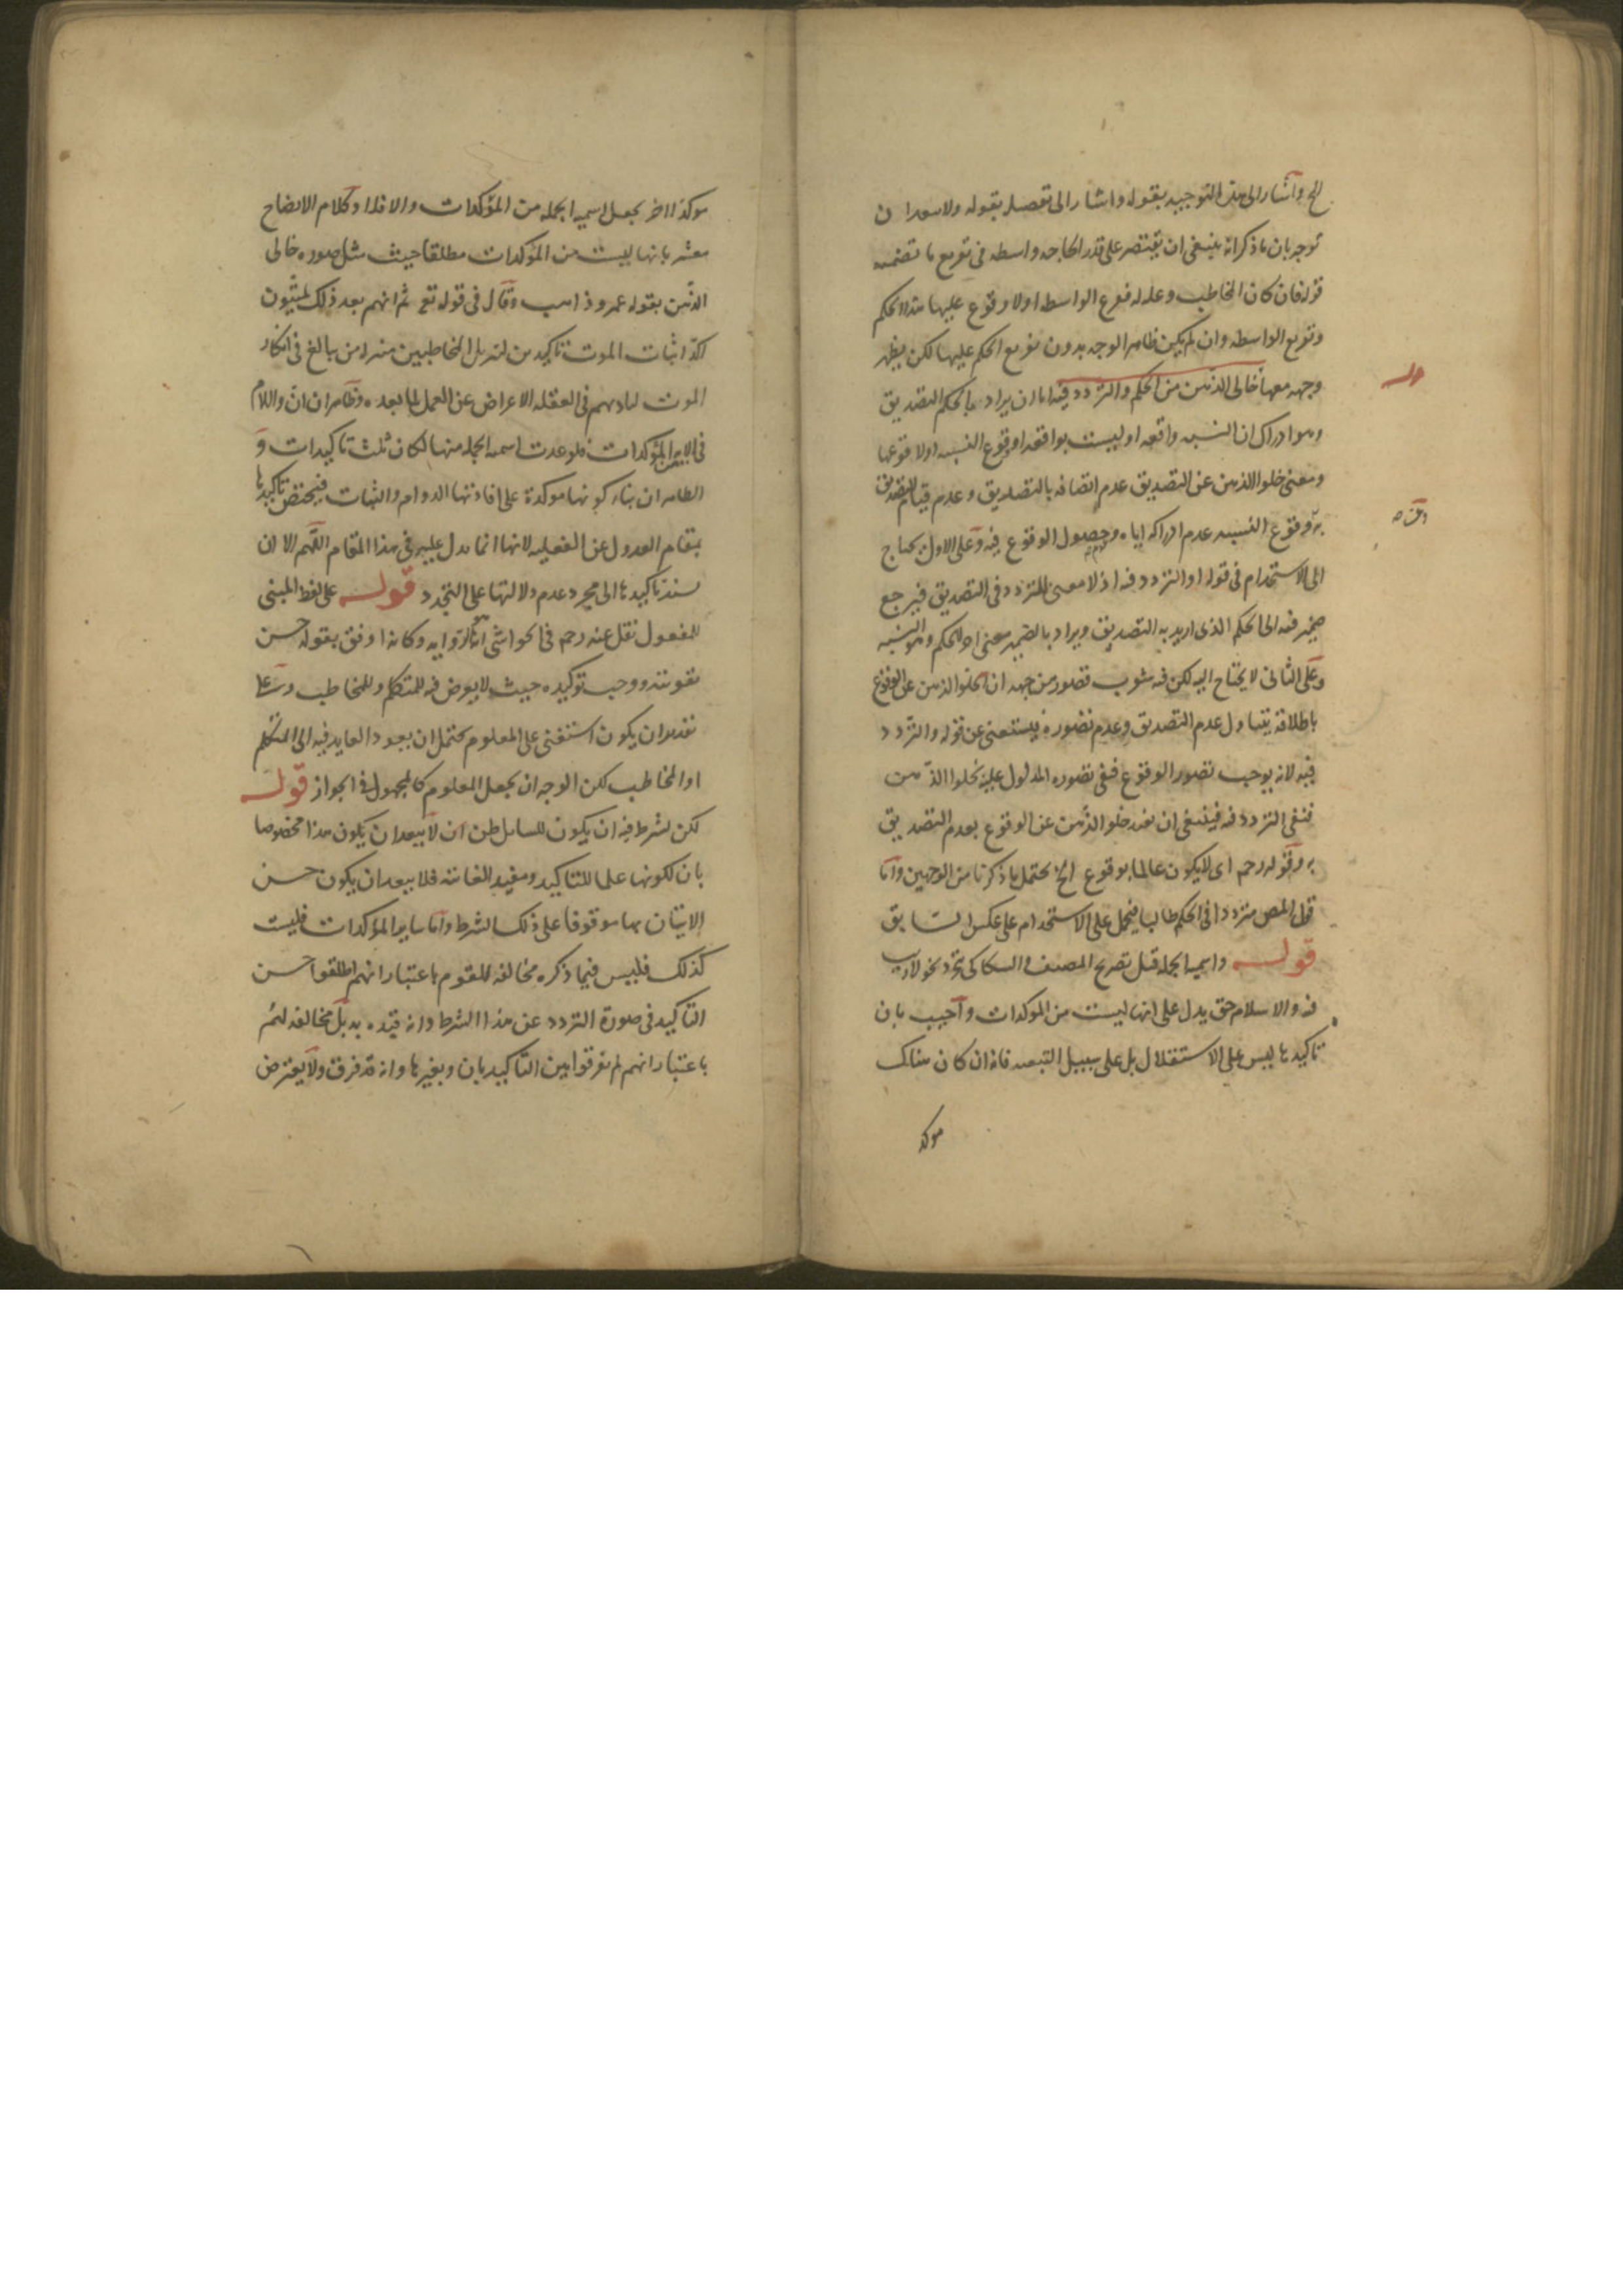 الخ واشار الى هذا التوجيه بقوله واشار الى تفصيله بقوله ولا
توجه بان ما ذكر انه ينبغي ان يقتصر على قدر الحاجه واسطه في تفريع ما تضمنه
قوله فان كان المخاطب وعله له فرع الواسطه اولا وقوع عليها هذا الحكم
وتفريع الواسطه وان لم يكن ظاهر الوجه بدون تفريع الحكم عليها لكن يظهر
قوله
وجهه معها خالى الذهن من الحكم والتردد فيه اما ان يراد بالحكم التصديق
وهو ادراك ان النسبه واقعه او ليست بواقعه او وقوع النسبه او لا وقوعها
ومعنى خلو الذهن عن التصديق عدم اتصافه بالتصديق وعدم قيام التصديق
به وقوع النسبه عدم ادراكه اياه وحصول الوقوع فيه وعلى الاول يحتاج
الى الاستخدام في قوله او التردد فيه اذ لا معنى للتردد في التصديق فيرجع
ضمير فيه الى الحكم الذى اريد به التصديق ويراد بالضمير معنى اخر للحكم وهو النسبه
وعلى الثانى لا يحتاج اليه لكن فيه شوب قصور من جهه ان خلو الذهن عن الوقوع
باطلاقه يتناول عدم التصديق وعدم تصوره فيستغنى عن قوله والتردد
فيه لانه يوجب تصور الوقوع فنفى تصوره المدلول عليه بخلو الذهن
فنفى التردد فيه فينبغى ان يقيد خلو الذهن عن الوقوع بعدم التصديق
به وقوله رحمه اى لا يكون عالما بوقوع الخ يحتمل ما ذكرنا من الوجهين واما
قول المص مترددا في الحكم طالبا فيحمل على الاستخدام على عكس السابق
قوله واسميه الجمله قيل تصريح المصنف والسكاكى بتجرد نحو لا ريب
فيه والاسلام حق يدل على انها ليست من المؤكدات واجيب بان
تاكيدها ليس على الاستقلال بل على سبيل التبعيه فانه ان كان هناك
موكد
موكد اخر يجعل اسميه الجمله من المؤكدات والا فلا وكلام الايضاح
مشعر بانها ليست من المؤكدات مطلقا حيث مثل صوره خالى
الذهن بقوله عمرو ذاهب وقال في قوله تع ثم انهم بعد ذلك لميتون
اكد اثبات الموت تاكيدين لتنزيل المخاطبين منزله من يبالغ في انكار
الموت لتماديهم في الغفله والاعراض عن العمل لما بعده وظاهر ان ان واللام
في الايه من المؤكدات فلو عدت اسميه الجمله منها لكان ثلث تاكيدات و
الظاهر ان بناء كونها موكدة على افادتها الدوام والثبات فيختص تاكيدها
بمقام العدول عن الفعليه لانها انما تدل عليه في هذا المقام اللهم الا ان
يسند تاكيدها الى مجرد عدم دلالتها على التجدد قوله على لفظ المبنى
للمفعول نقل عنه رحمه في الحواشى انه الروايه وكانه اوفق بقوله حسن
تقويته ووجب توكيده حيث لا يعرض فيه للمتكلم وللمخاطب وعلى
تقدير ان يكون استغنى على المعلوم يحتمل ان يعود العايد فيه الى المتكلم
او المخاطب لكن الوجه ان يجعل المعلوم كالمجهول في الجواز قوله
لكن يشرط فيه ان يكون للسايل ظن ان لا يبعد ان يكون هذا مخصوصا
بان لكونها علما للتاكيد ومفيد الغايته فلا يبعد ان يكون حسن
الاتيان بها موقوفا على ذلك الشرط واما ساير المؤكدات فليست
كذلك فليس فيما ذكره مخالفه للقوم باعتبار انهم اطلقوا حسن
التاكيد في صورة التردد عن هذا الشرط وانه قيده به بل مخالفه لهم
باعتبار انهم لم يفرقوا بين التاكيد بان وبغيرها وانه قد فرق ولا يعترض